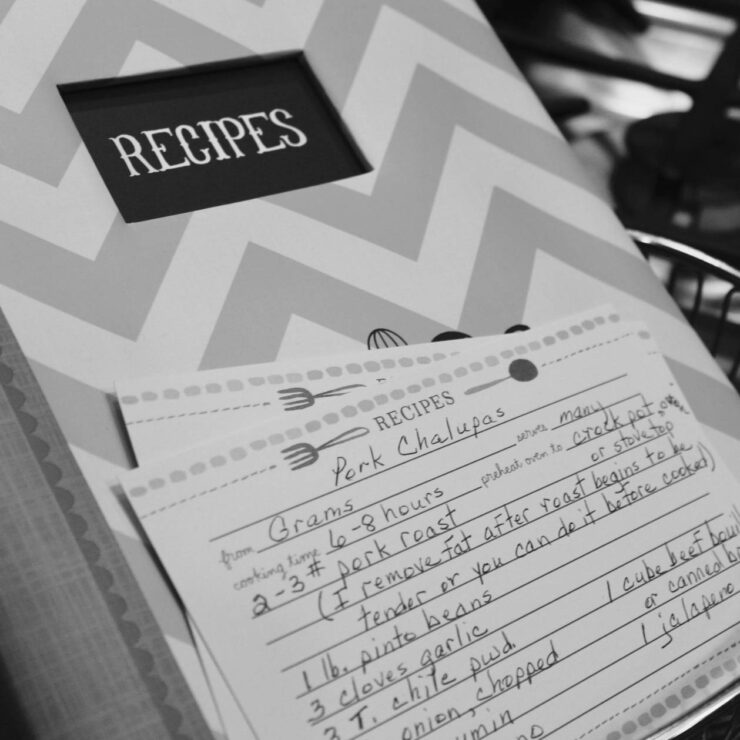 RECIPES
RECIPES
Pork Chalupas
from Grams serves many
cooking time 6-8 hours preheat oven to crock pot, oven
or stove top
2-3# pork roast
(I remove fat after roast begins to be
tender or you can do it before cooked)
1 lb. pinto beans
3 cloves garlic 1 cube beef
3 T. chile pwd. or canned
onion, chopped 1 jalapeno